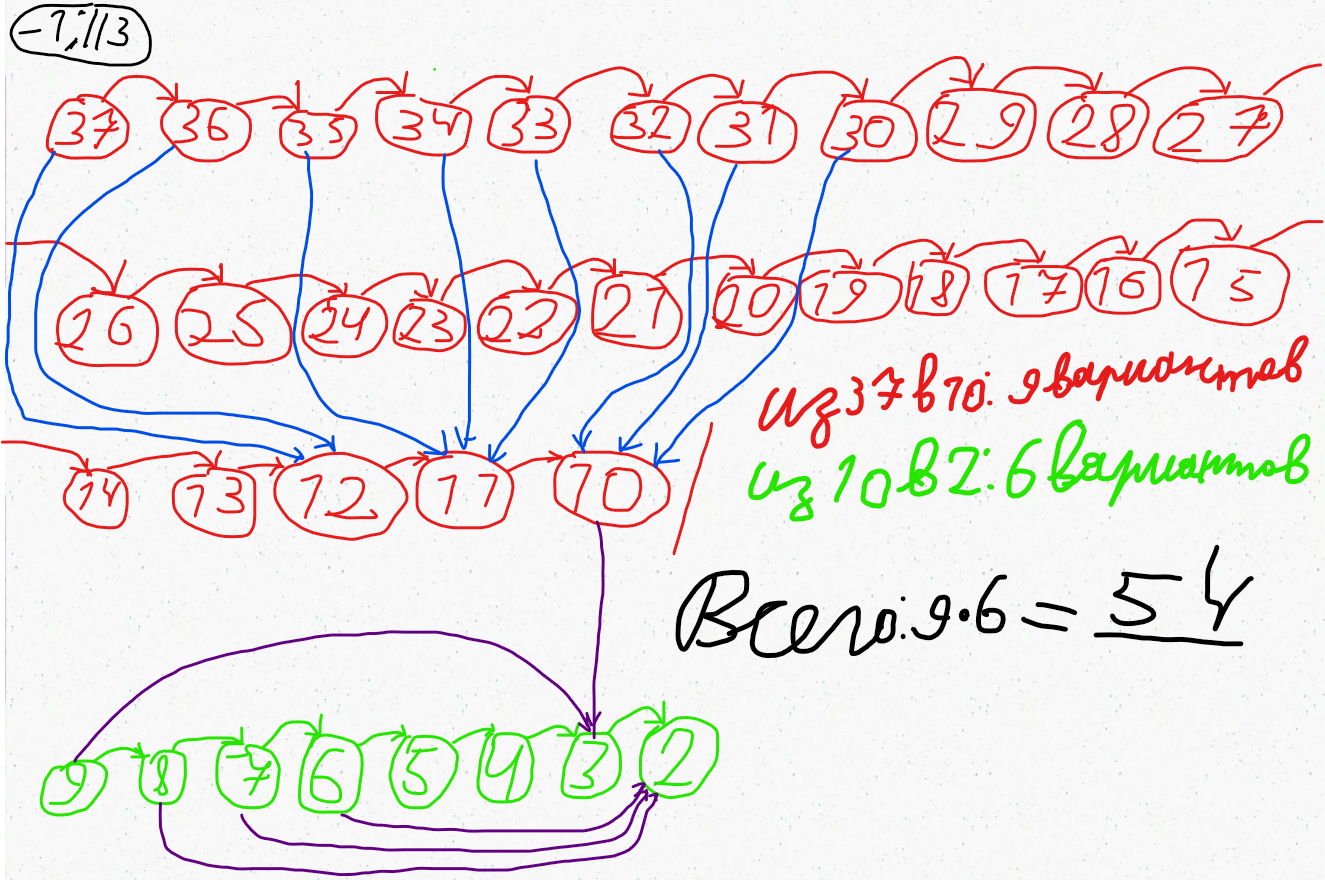 -1; //3
37 36 35 34 33 32 31 30 29 28 27
26 25 24 23 22 21 20 19 18 17 16 15
из 37 в 10: 9 вариантов
из 10 в 2: 6 вариантов
14 13 12 11 10
Всего: 9·6 = 54
9 8 7 6 5 4 3 2